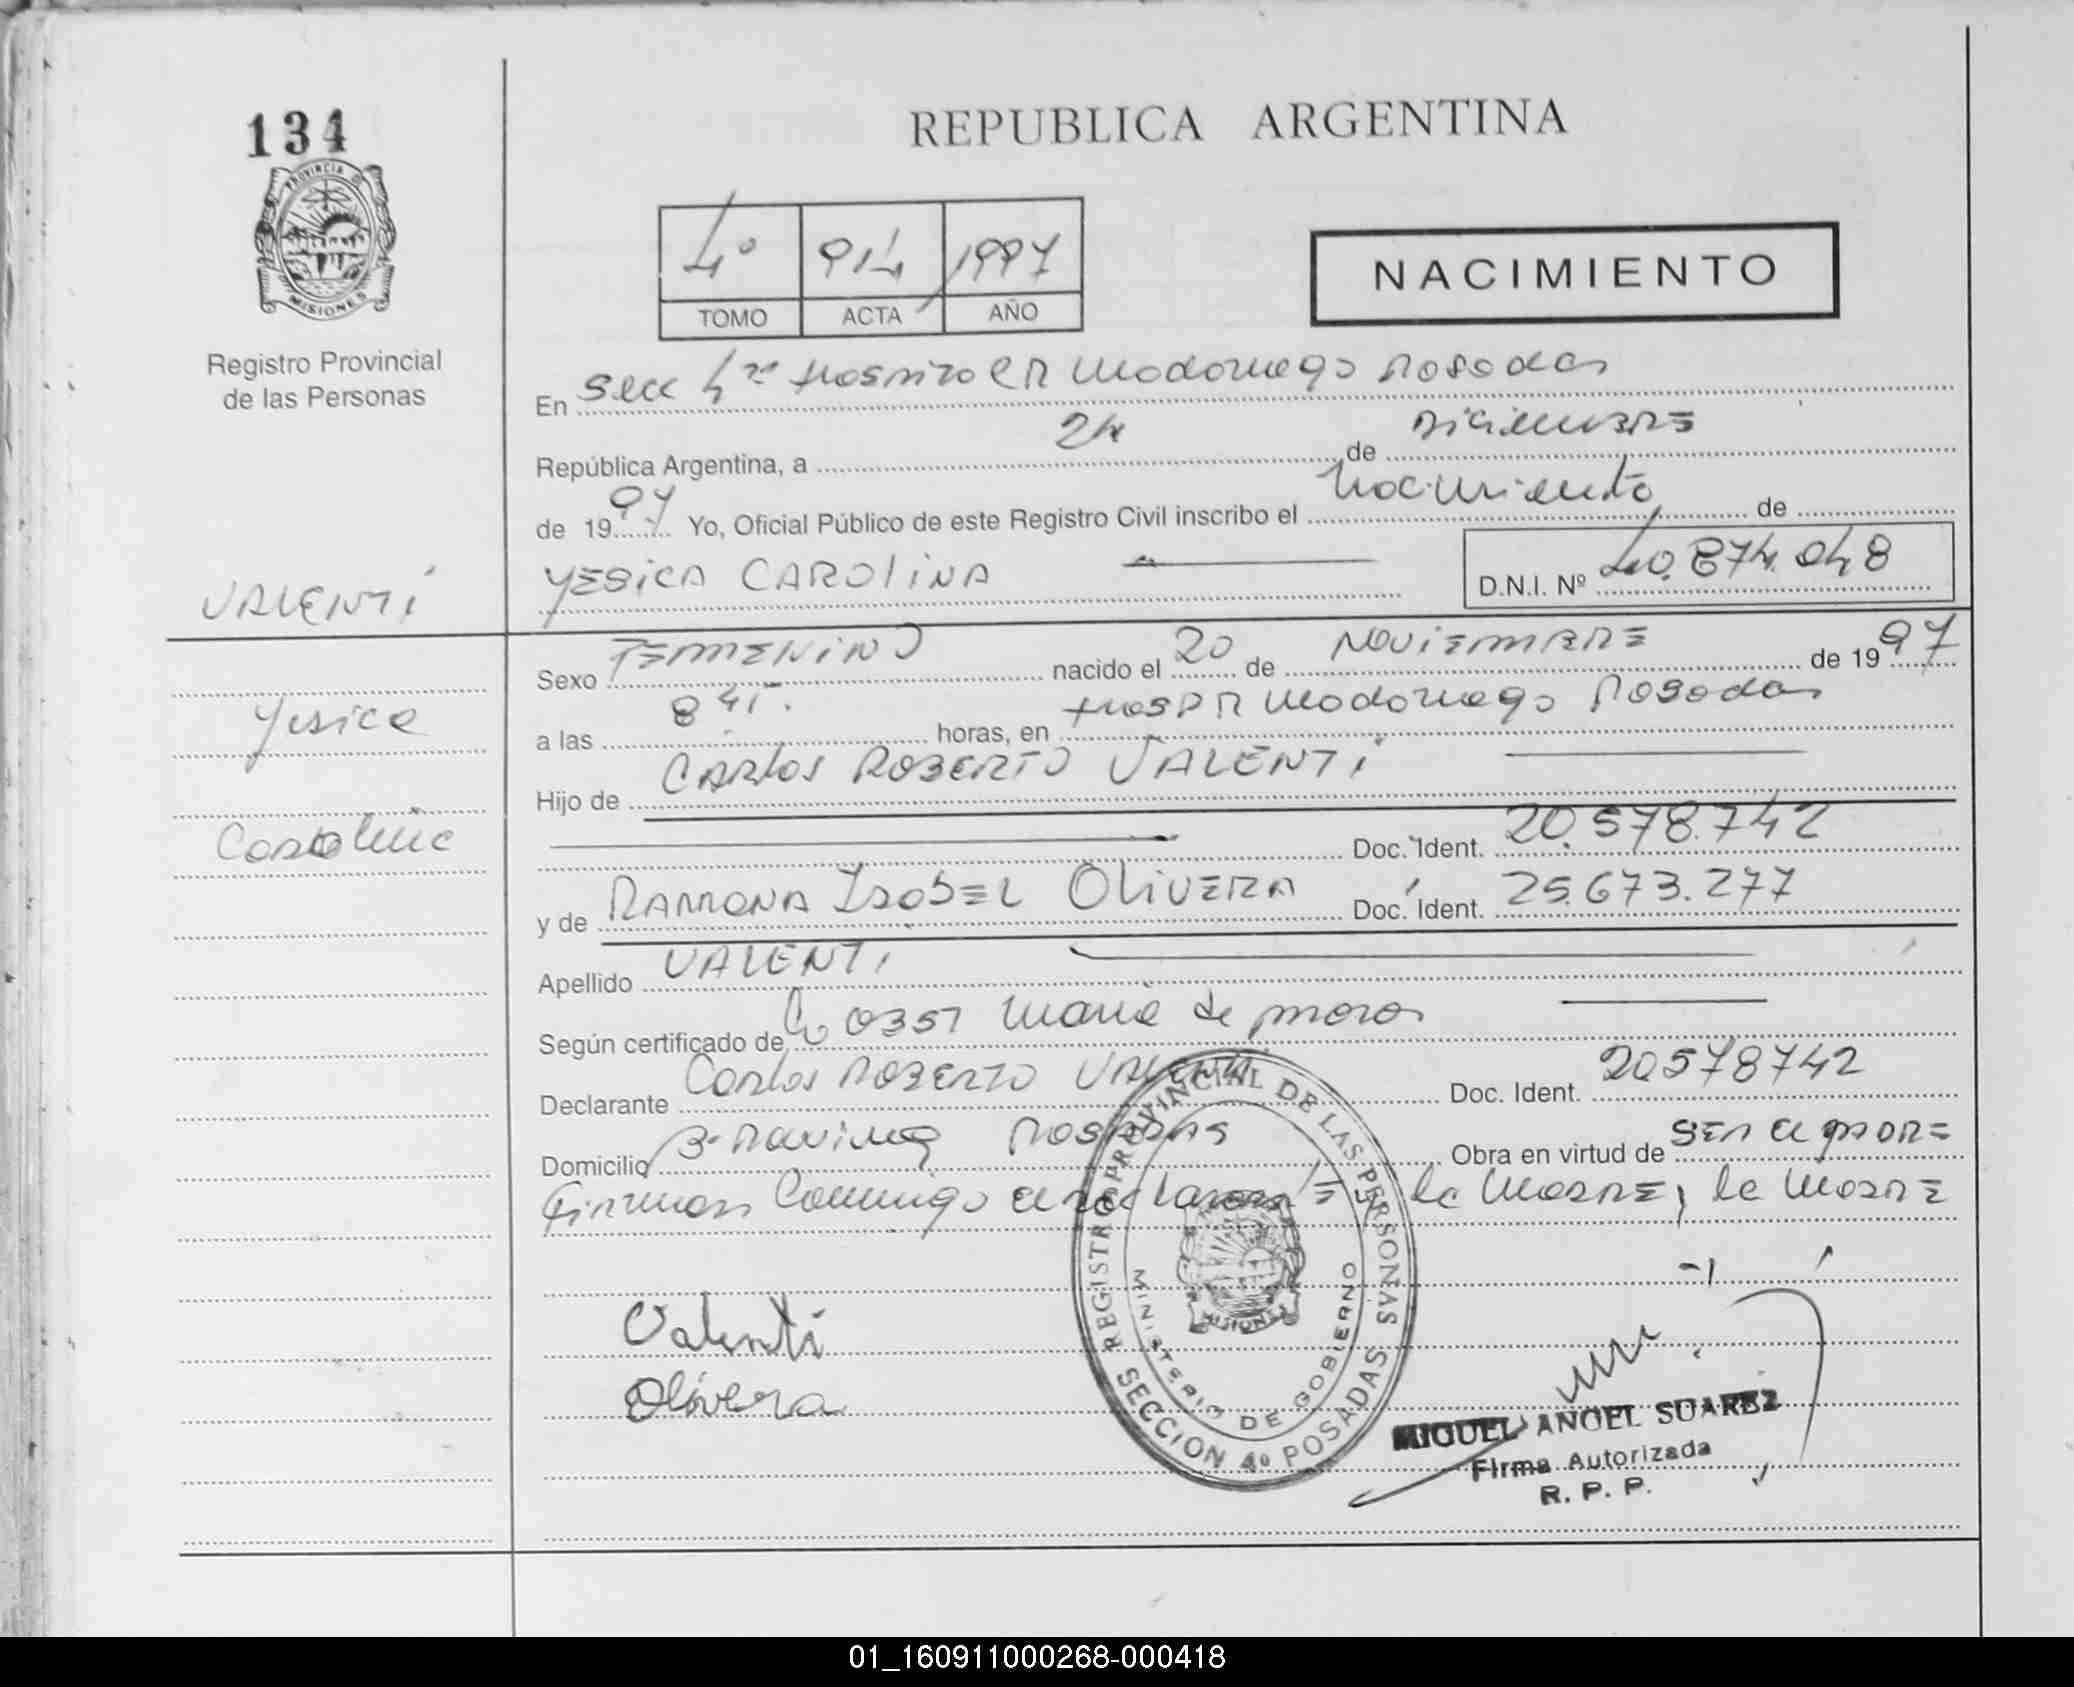 134
PROVINCIA D
MISIONES
Registro Provincial
de las Personas
REPUBLICA ARGENTINA
4º 914 1997
TOMO ACTA AÑO
NACIMIENTO
En Secc 4ta Hospital R Madariaga Posadas
República Argentina, a 24 de Diciembre
de 1997 Yo, Oficial Público de este Registro Civil inscribo el Nacimiento de
YESICA CAROLINA D.N.I. Nº 40.874.048
VALENTI
Yesica
Carolina
Sexo FEMENINO nacido el 20 de NOVIEMBRE de 1997
a las 8 45. horas, en Hosp R Madariaga Posadas
Hijo de CARLOS ROBERTO VALENTI
Doc. Ident. 20.578.742
y de RAMONA ISABEL OLIVERA Doc. Ident. 25.673.277
Apellido VALENTI
Según certificado de 0351 Maria de
Declarante Carlos ROBERTO VALENTI Doc. Ident. 20578742
Domicilio POSADAS Obra en virtud de SER el PADRE
Firman Conmigo el declarante la MADRE, la MADRE
Valenti
Olivera
REGISTRO PROVINCIAL DE LAS PERSONAS
MINISTERIO DE GOBIERNO
MISIONES
SECCION 4º POSADAS
MIGUEL ANGEL SUAREZ
Firma Autorizada
R. P. P.
01_160911000268-000418